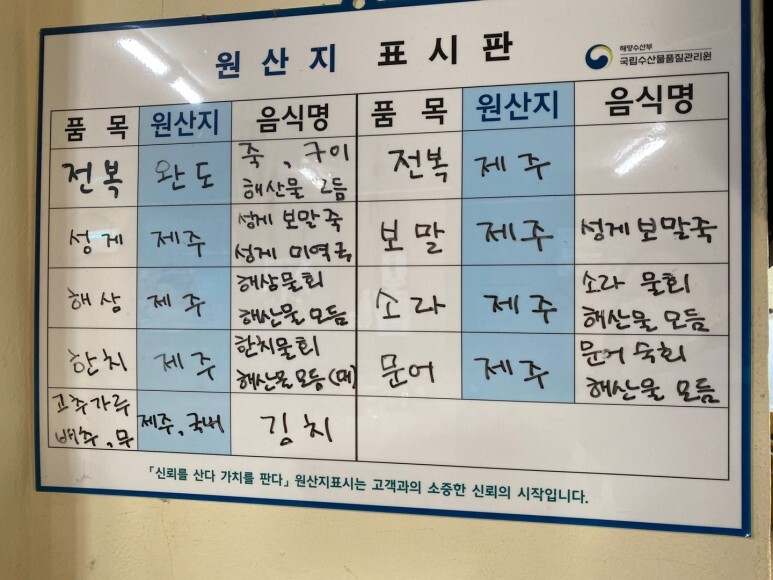 원산지 표시판
해양수산부
국립수산물품질관리원
품 목 원산지 음식명 품 목 원산지 음식명
전복 완도 죽, 구이
해산물 모듬
전복 제주
성게 제주 성게 보말죽
성게 미역국
보말 제주 성게보말죽
해삼 제주 해삼물회
해산물 모듬
소라 제주 소라 물회
해산물 모듬
한치 제주 한치물회
해산물 모듬
문어 제주 문어 숙회
해산물 모듬
고추가루
배추, 무 제주, 국내 김치
「신뢰를 산다 가치를 판다」 원산지표시는 고객과의 소중한 신뢰의 시작입니다.